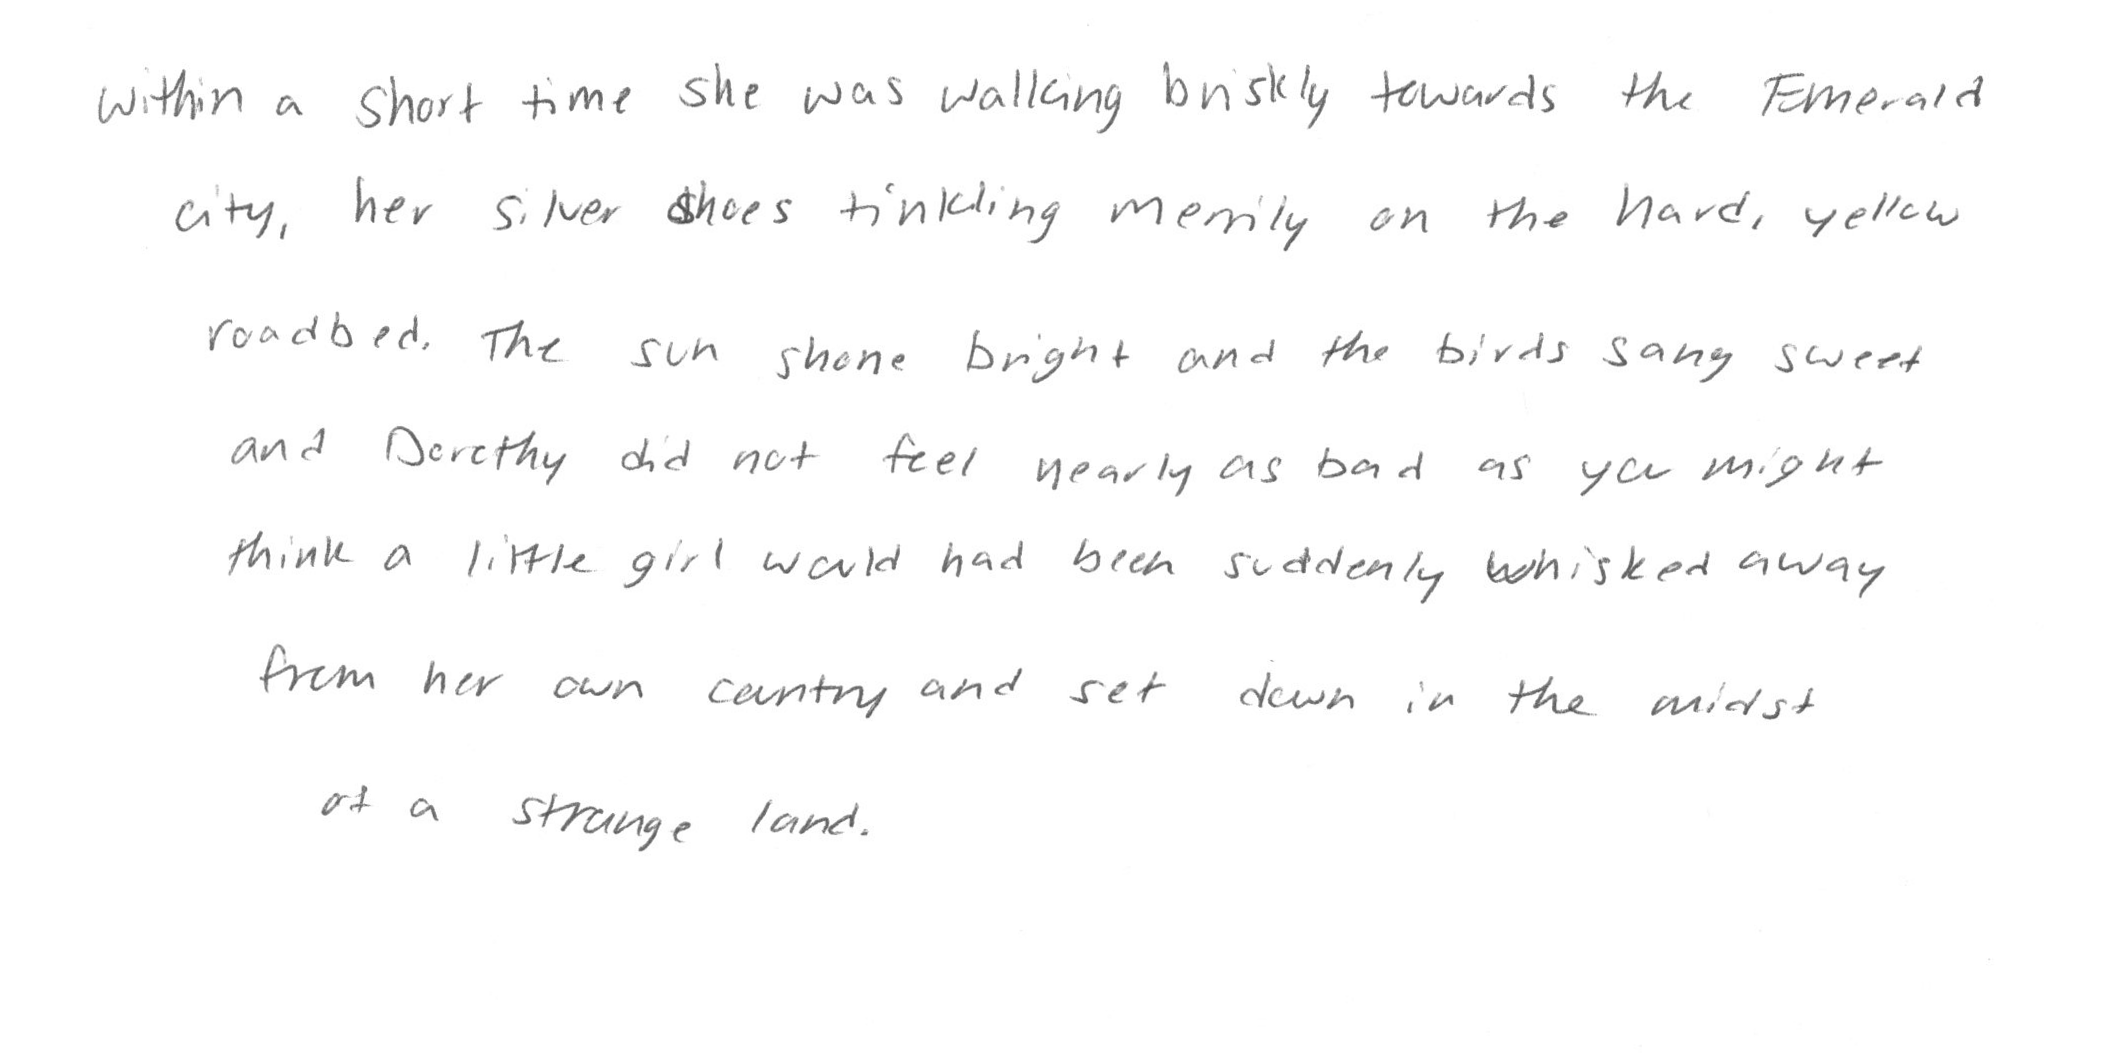 within a short time she was walking briskly towards the Emerald
city, her silver shoes tinkling merrily on the hard, yellow
roadbed. The sun shone bright and the birds sang sweet
and Dorothy did not feel nearly as bad as you might
think a little girl would had been suddenly whisked away
from her own country and set down in the midst
of a strange land.